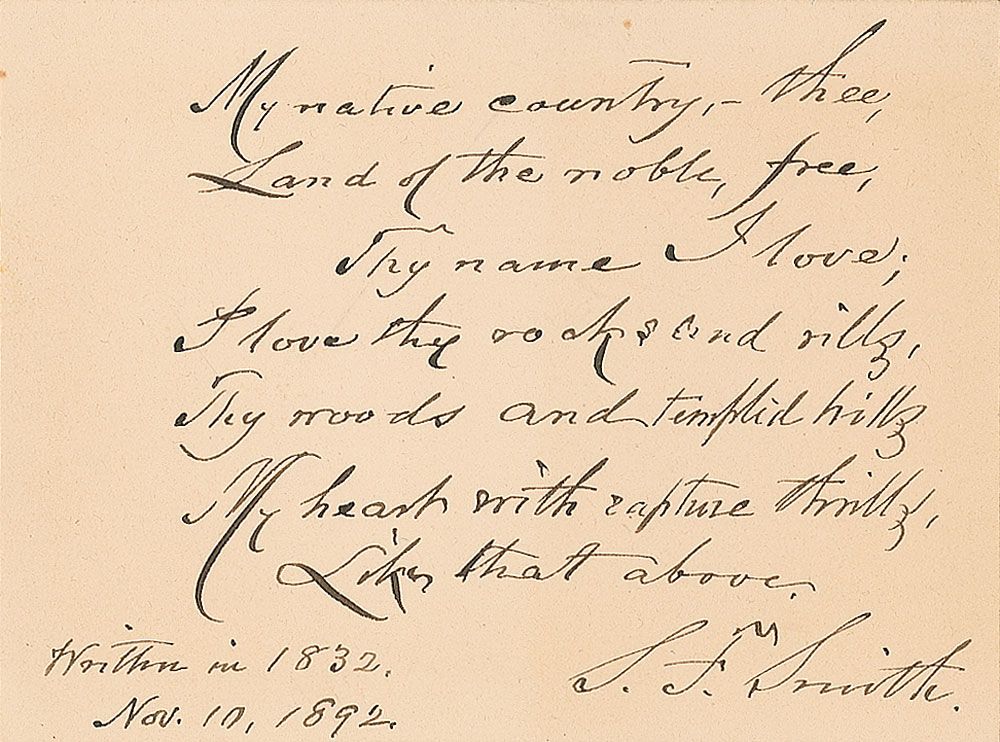 My native country, – thee,
Land of the noble, free,
Thy name I love;
I love thy rocks and rills,
Thy woods and templed hills
My heart with rapture thrills,
Like that above.
S. F. Smith.
Written in 1832.
Nov. 10, 1892.